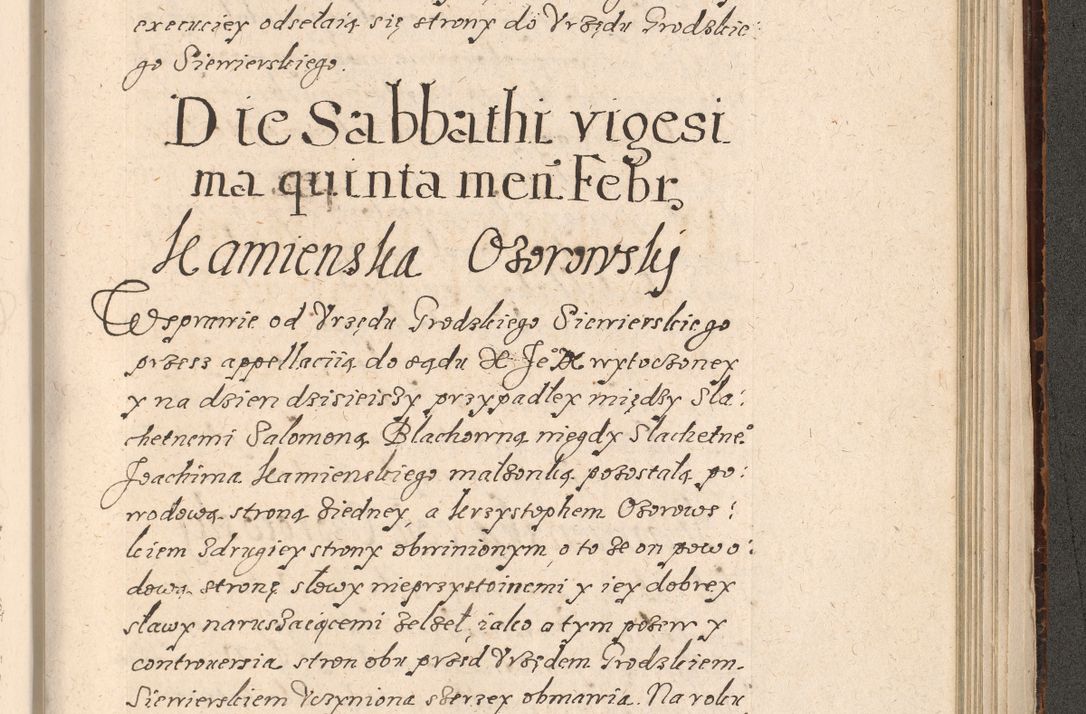 execuciey odsełaią się strony do Vrzędu Grodzkie
go Siewierskiego.
Die Sabbathi vigesi
ma quinta men Febr
Kamienska Ozorowskÿ
W sprawie od Vrzędu Grodzkiego Siewierskiego
przesz appellaciią do sądu X Je° X wytoczoney
y na dzien dzisieiszy przypadłey między Sla:
chetnemi Salomoną Blachowną niegdy Slachetne°
Joachima Kamienskiego małżonką pozostałą po:
wodową stroną ziedney, a Krzysztophem Ozorows:
kiem zdrugiey strony obwinionym, o to że on powo:
dową stronę słowy nieprzystoinemi y iey dobrey
sławy naruszaiącemi zelżeł, iako o tym pozew y
controuersia stron obu przed Vrzędem Grodzkiem
Siewierskiem Vczyniona szerzey obmawia. Na roku